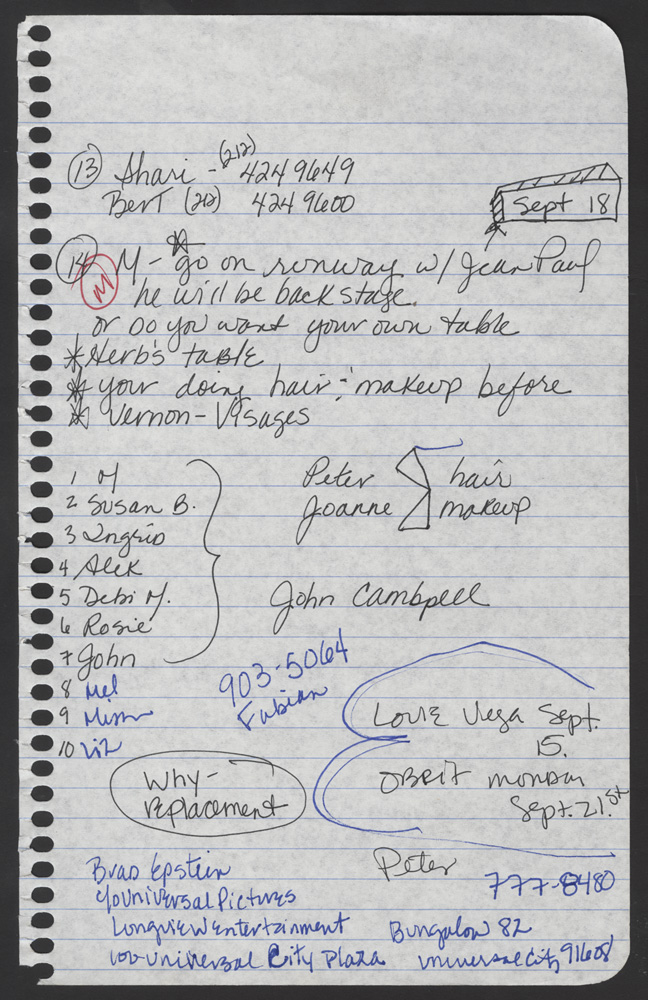 (13) Shari - (212) 424 9649
Bert (212) 424 9600
Sept 18
(14) M - go on runway w/ Jean Paul
M he will be backstage.
or Do you want your own table
* Herb's table
* your doing hair : makeup before
* Vernon - Visages
1 M
2 Susan B.
3 Ingrid
4 Alek
5 Debi M.
6 Rosie
7 John
8 Mel
9
10 Liz
Peter hair
Joanne makeup
John Cambpell
903-5064
Fabian
Louie Vega Sept.
15.
ORBIT monday
Sept. 21.st
Why -
replacement
Peter
777-8480
Brad Epstein
Youniversal Pictures
Longview Entertainment Bungalow 82
100 Universal City Plaza Universal City 91608